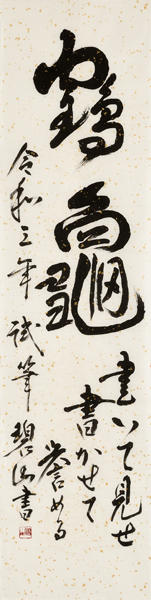 鶴龜
書いて見せ
書かせて
誉める
令和三年 試筆 碧山書